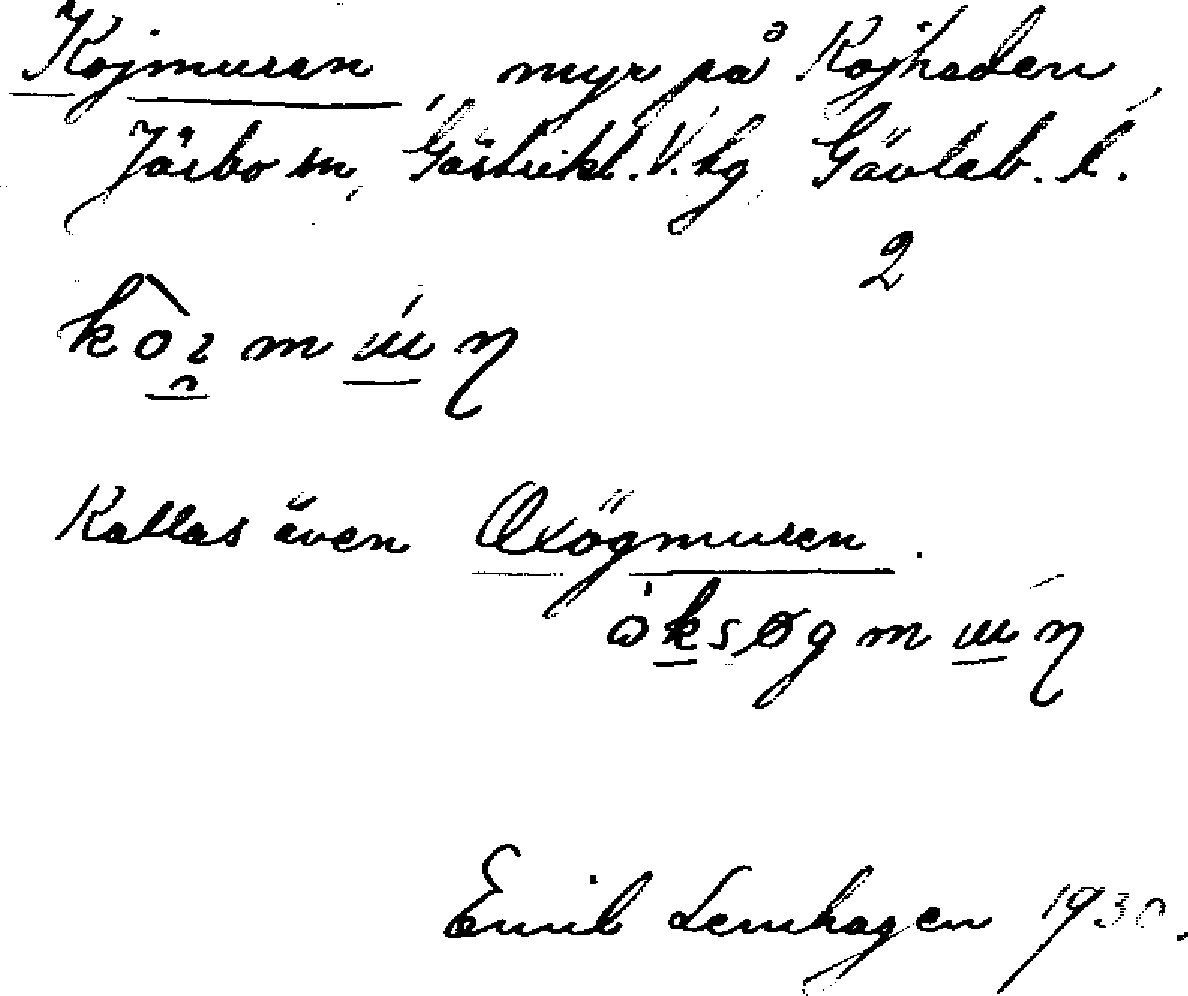 Kojmuran, myr på Kojheden,
Järbo sn, Gästrikl. V. hg Gävleb. l.
2
Kallas även Oxögmuren.
Emil Lenhagen 1930.